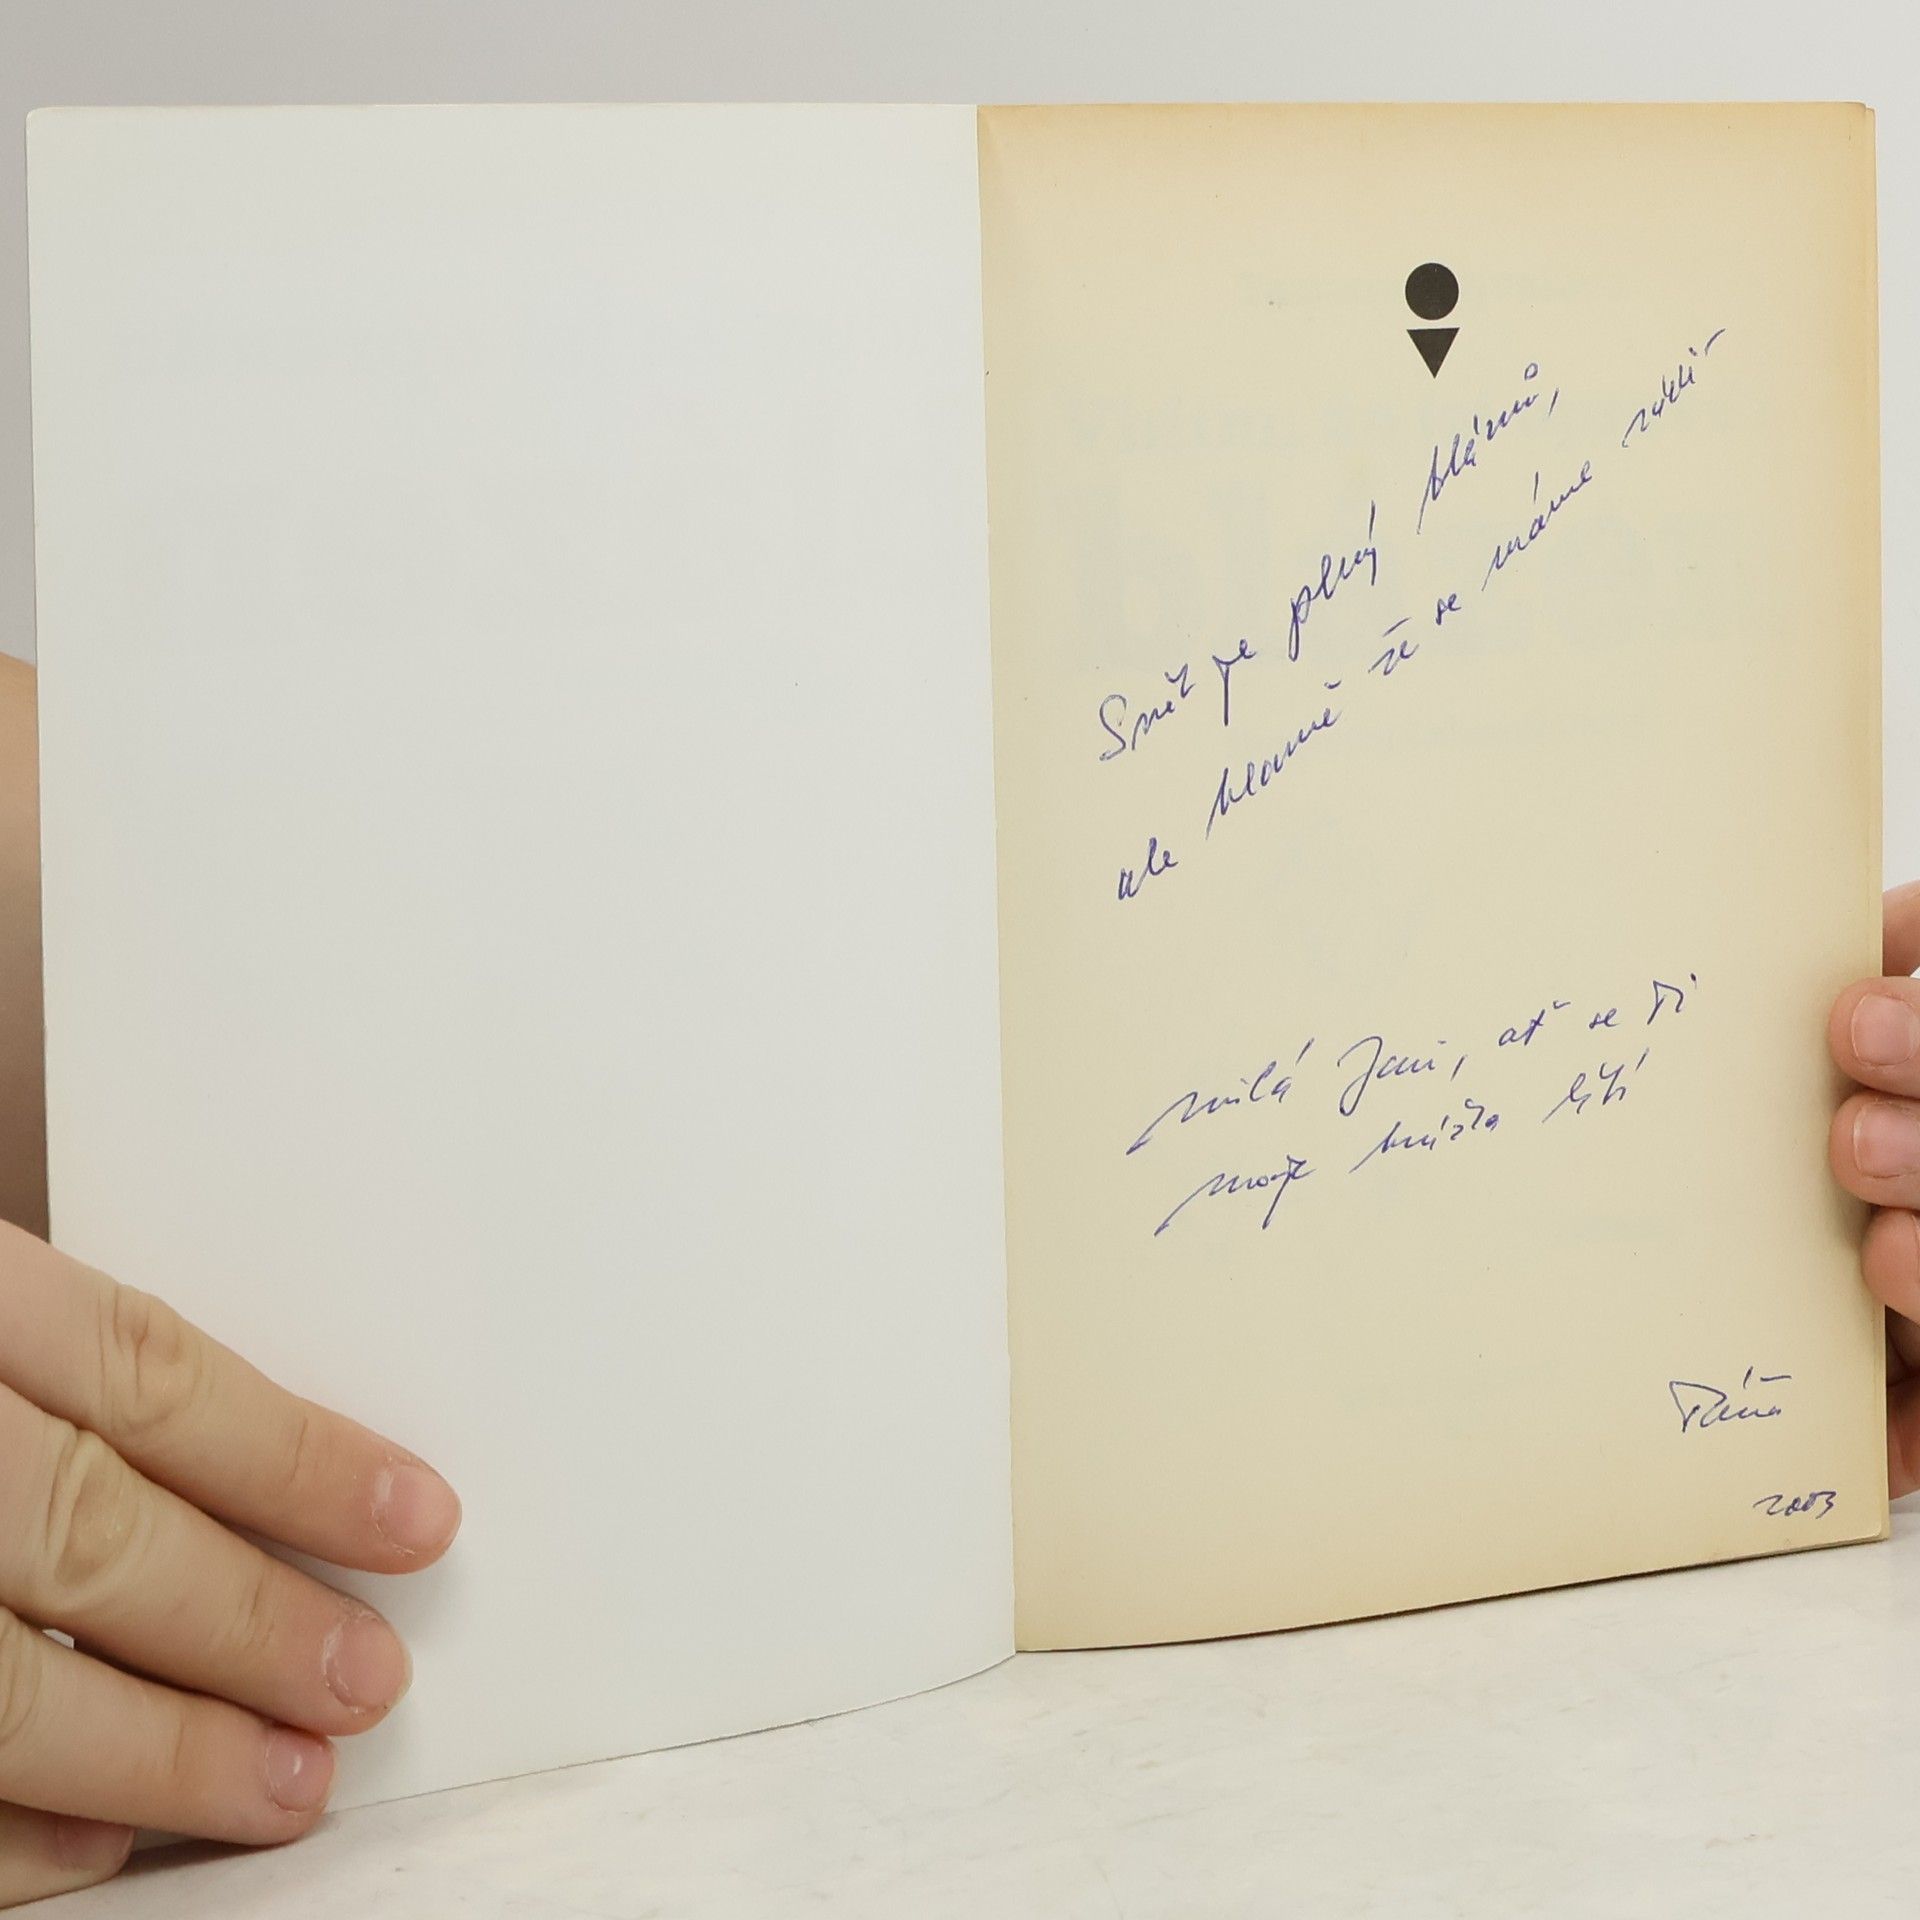 Svět je plný bláznů,
ale hlavně že se máme rádi
milá Jani, ať se Ti
moje knížka líbí
Táňa
2003